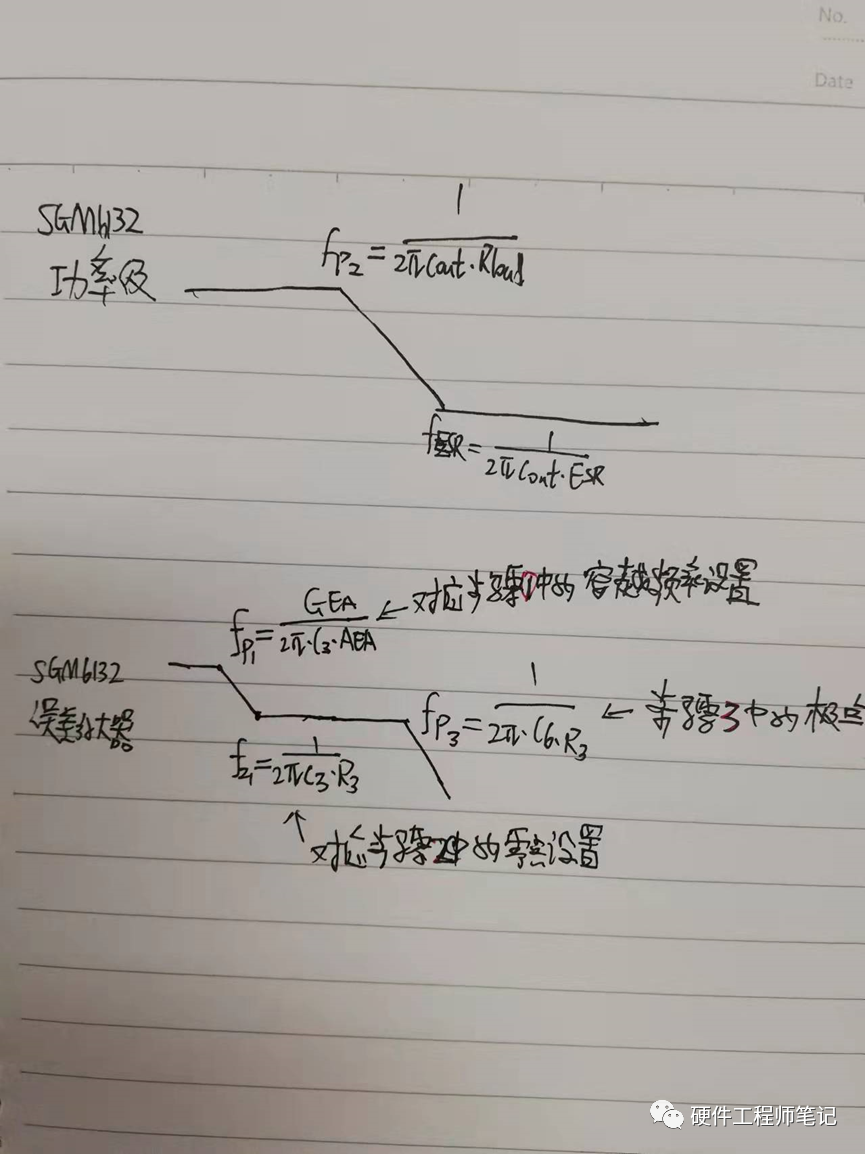 No.
Date
SGM6132
功率级
fP2 = 1 / 2π Cout · Rload
fESR = 1 / 2π Cout · ESR
SGM6132
误差放大器
fP1 = GEA / 2π · C3 · AEA ← 对应步骤1中的穿越频率设置
fP3 = 1 / 2π · C6 · R3 ← 步骤3中的极点
fz1 = 1 / 2π C3 · R3
↑ 对应步骤2中的零点设置
硬件工程师笔记